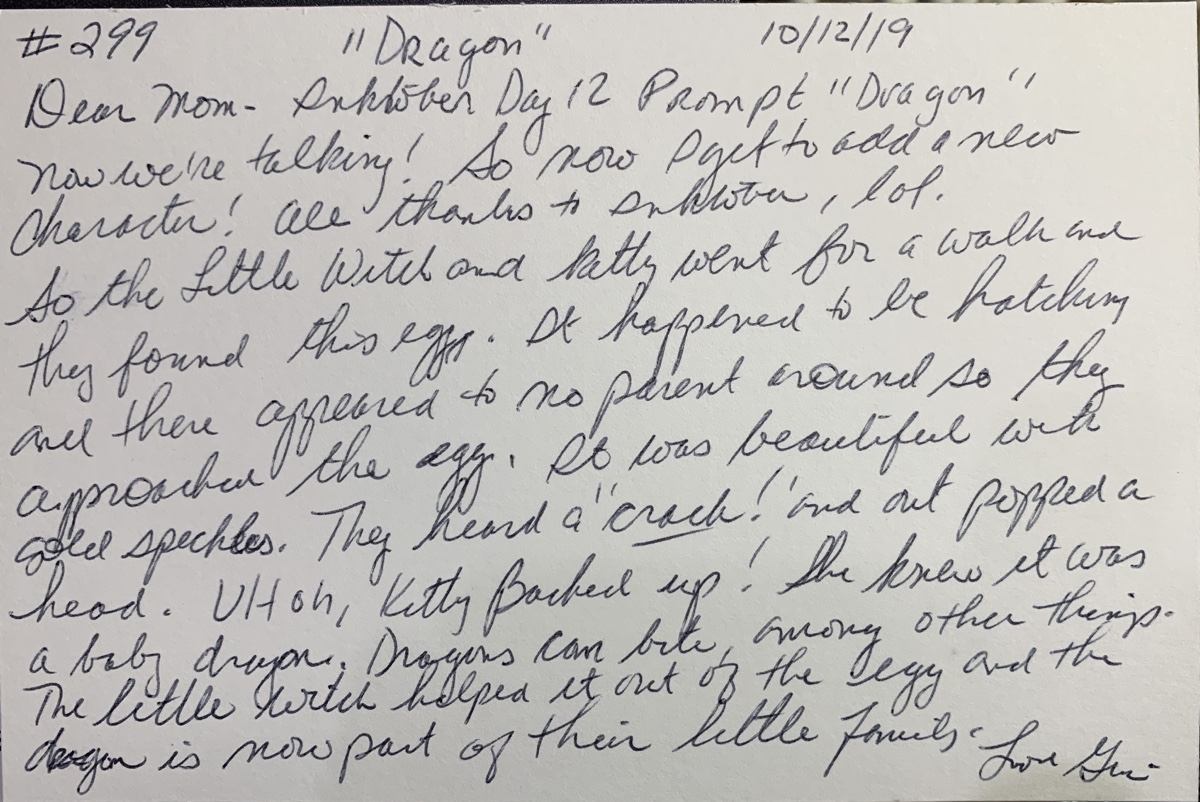 #299 "Dragon" 10/12/19
Dear Mom- Inktober Day 12 Prompt "Dragon"
Now we're talking! So now I get to add a new
character! All thanks to Inktober, lol.
So the Little Witch and Kitty went for a walk and
they found this egg. It happened to be hatching
and there appeared to no parent around so they
approached the egg. It was beautiful with
gold speckles. They heard a "crack!" and out popped a
head. UH oh, Kitty Backed up! She knew it was
a baby dragon. Dragons can bite, among other things.
The little witch helped it out of the egg and the
dragon is now part of their little family. Love